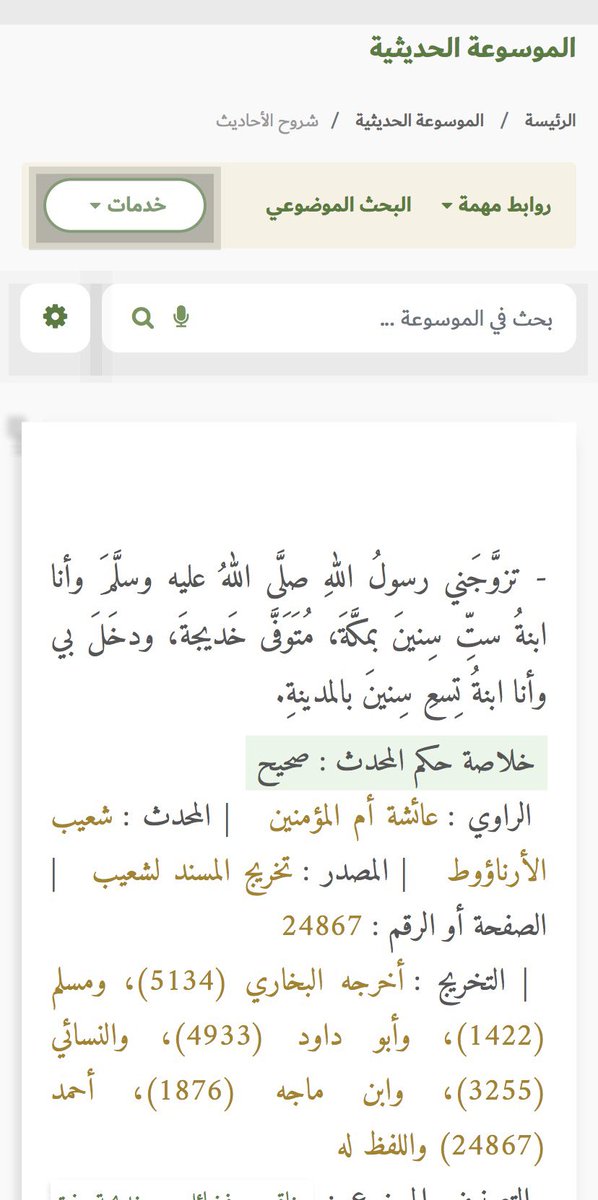 الموسوعة الحديثية
الرئيسة / الموسوعة الحديثية / شروح الأحاديث
روابط مهمة البحث الموضوعي خدمات
بحث في الموسوعة ...
- تزوَّجَني رسولُ اللهِ صلَّى اللهُ عليه وسلَّمَ وأنا
ابنةُ ستِّ سِنينَ بمكَّةَ، مُتَوَفَّى خَديجةَ، ودخَلَ بي
وأنا ابنةُ تِسعِ سِنينَ بالمدينةِ.
خلاصة حكم المحدث : صحيح
الراوي : عائشة أم المؤمنين | المحدث : شعيب
الأرناؤوط | المصدر : تخريج المسند لشعيب |
الصفحة أو الرقم : 24867
| التخريج : أخرجه البخاري (5134)، ومسلم
(1422)، وأبو داود (4933)، والنسائي
(3255)، وابن ماجه (1876)، أحمد
(24867) واللفظ له